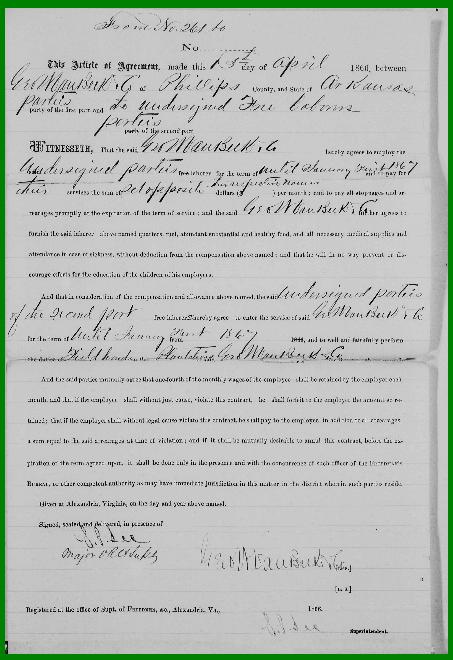 From No. 261 to
No.
This Article of Agreement, made this 1st day of April 1866, between
Geo W Van Beek & Co Phillips County, and State of Arkansas
parties
party of the first part and undersigned Free
parties
party of the second part
WITNESSETH, That the said Geo W Van Beek & Co hereby agrees to employ the
said undersigned parties free laborer for the term of until January first 1867 and to pay for
this services the sum of set opposite their respective names dollars ($ ) per month; and to pay all stoppages and ar-
rearages promptly at the expiration of the term of service; and the said Geo W Van Beek & Co further agrees to
furnish the said laborer above named quarters, fuel, abundant substantial and healthy food, and all necessary medical supplies and
attendance in case of sickness, without deduction from the compensation above named; and that he will in no way prevent or dis-
courage efforts for the education of the children of his employees.
And that in consideration of the compensation and allowance above named, the said undersigned parties
of the second part free laborer hereby agree to enter the service of said Geo W Van Beek & Co
for the term of until January first 1867 from 1866, and to well and faithfully perform
Field hands Plantation Geo W Van Beek & Co
And the said parties mutually agree that one-fourth of the monthly wages of the employee shall be retained by the employer each
month and that if the employee shall without just cause, violate this contract, he shall forfeit to the employer the amount so re-
tained; that if the employer shall without legal cause violate this contract he shall pay to the employee, in addition to all arrearages
a sum equal to the said arrearages at time of violation; and if it shall be mutually desirable to annul this contract, before the ex-
piration of the term agreed upon, it shall be done only in the presence and with the concurrence of such officer of the Freedmen's
Bureau, or other competent authority as may have immediate jurisdiction in this matter in the district wherein such parties reside.
Given at Alexandria, Virginia, on the day and year above named.
Signed, sealed and delivered, in presence of
Lee
Major & A. Supt
Geo W Van Beek & Co
[L. S.]
Registered at the office of Supt. of Freedmen, &c., Alexandria, Va., 1866.
Lee
Superintendent.